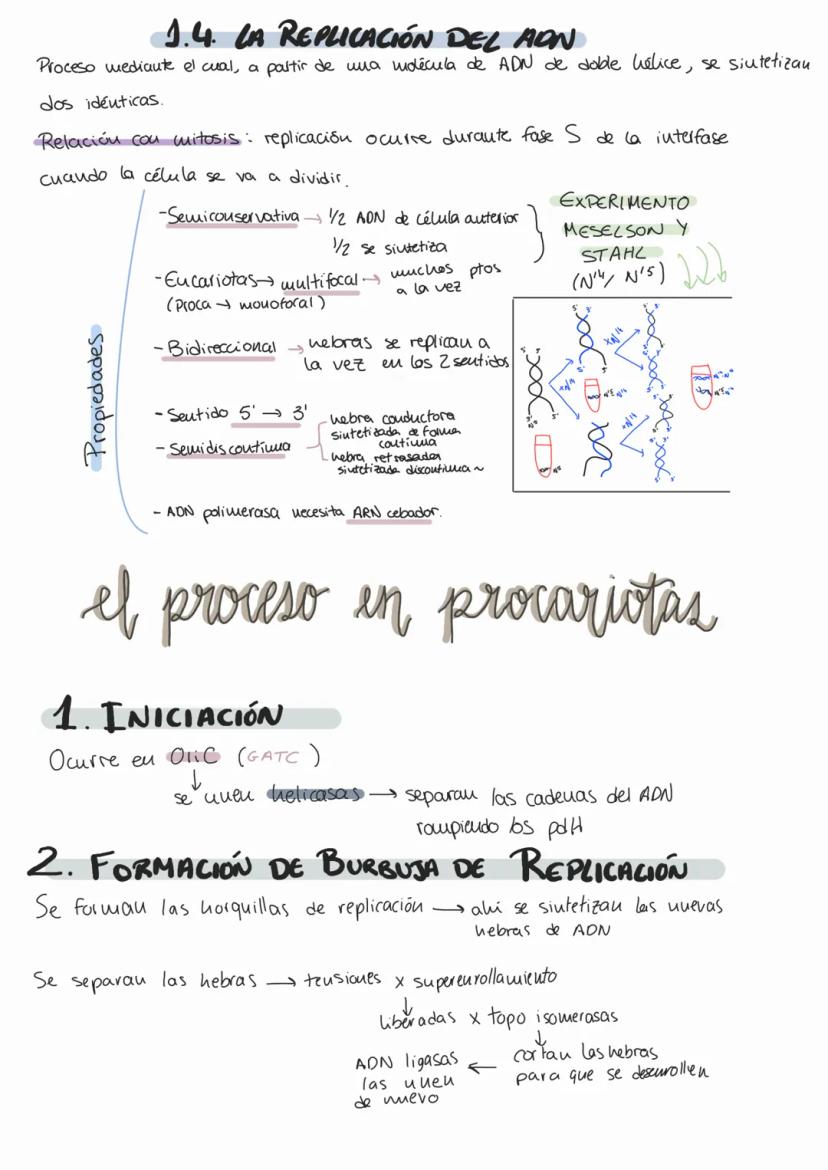 1.4. LA REPLICACIÓN DEL ADN
Proceso mediante el cual, a partir de una molécula de ADN de doble hélice, se sintetizan
dos idénticas.
Relación con mitosis: replicación ocurre durante fase S de la interfase
cuando la célula se va a dividir.
Propiedades
-Semiconservativa → 1/2 ADN de célula anterior
1/2 se sintetiza
-Eucariotas → multifocal → muchos ptos
a la vez
(Proca → monofocal)
- Bidireccional → hebras se replican a
la vez en los 2 sentidos
- Sentido 5' → 3'
- Semidiscontinua
hebra conductora
sintetizada de forma
continua
hebra retrasada
sintetizada discontinua ~
- ADN polimerasa necesita ARN cebador.
EXPERIMENTO
MESELSON Y
STAHL
(N14/ N15)
el proceso en procariotas
1. INICIACIÓN
Ocurre en OriC (GATC)
↓
se unen helicasas → separan las cadenas del ADN
rompiendo los pdH
2. FORMACIÓN DE BURBUJA DE REPLICACIÓN
Se forman las horquillas de replicación → ahí se sintetizan las nuevas
hebras de ADN
Se separan las hebras → tensiones x superenrollamiento
↓
liberadas x topoisomerasas
↓
cortan las hebras
para que se desenrollen
← ADN ligasas
las unen
de nuevo